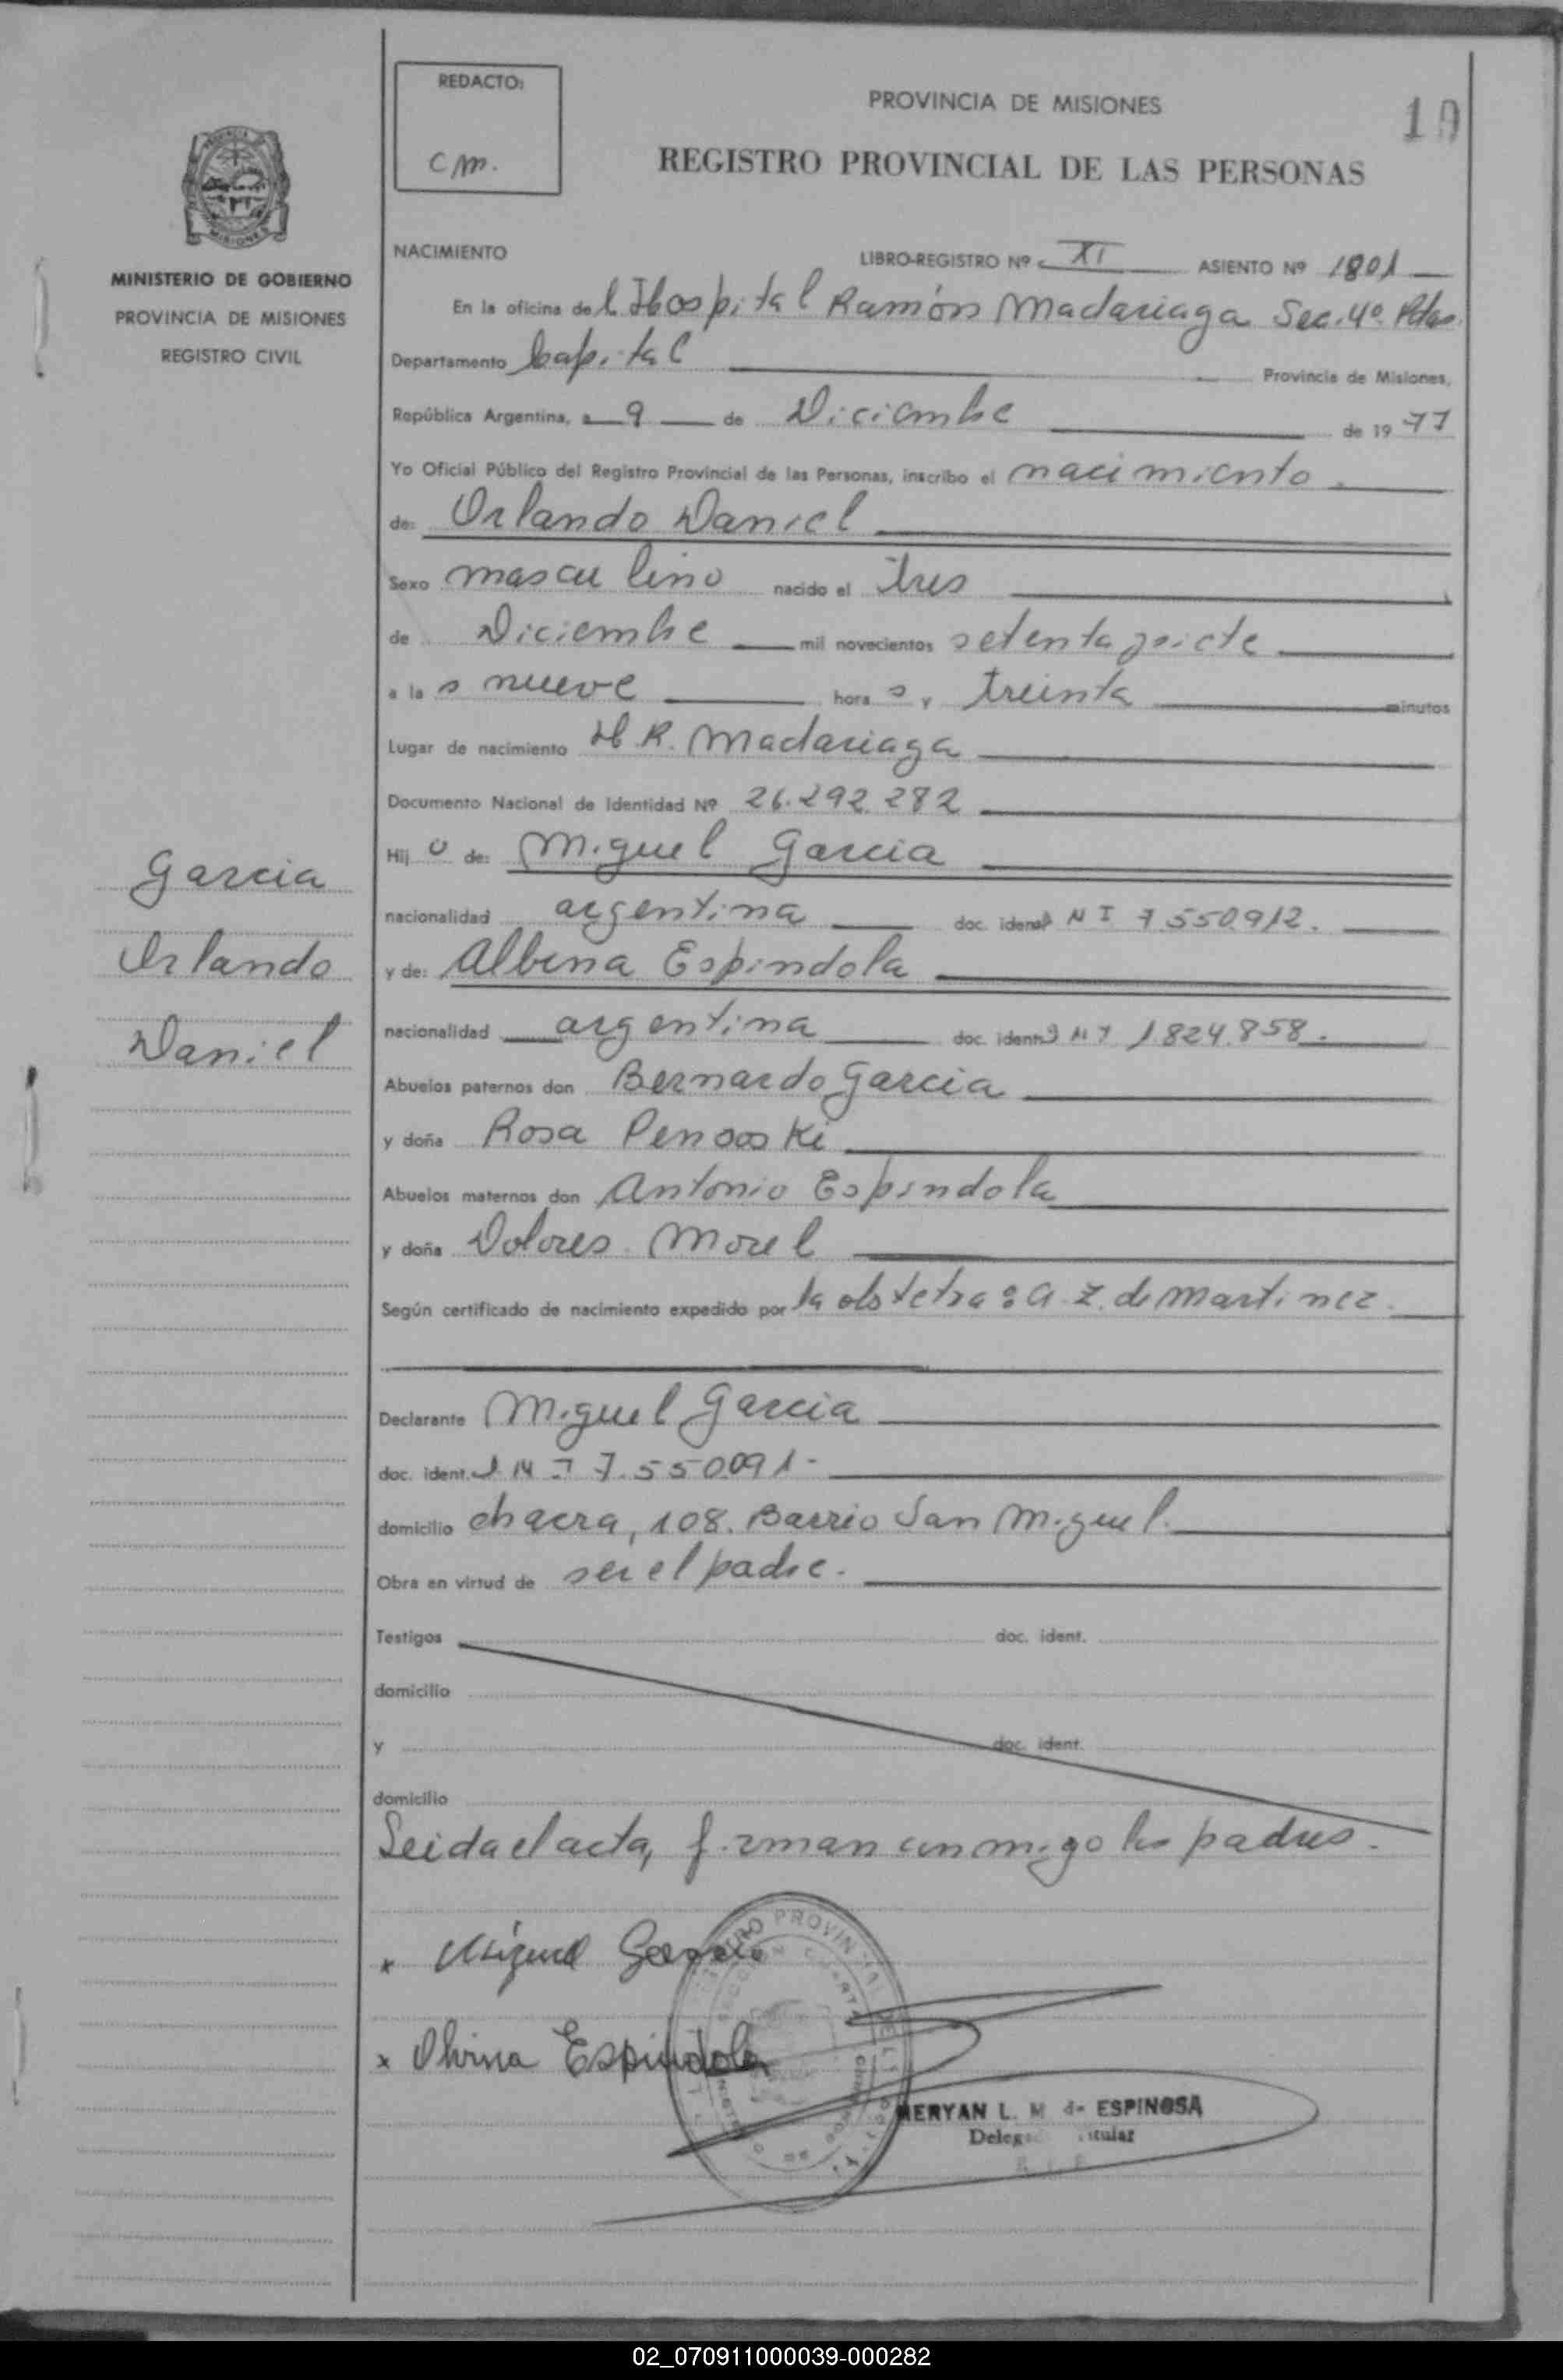 REDACTO:
CM.
PROVINCIA DE MISIONES
10
REGISTRO PROVINCIAL DE LAS PERSONAS
MISIONES
MINISTERIO DE GOBIERNO
PROVINCIA DE MISIONES
REGISTRO CIVIL
NACIMIENTO
LIBRO-REGISTRO Nº XI ASIENTO Nº 1801
En la oficina del Hospital Ramón Madariaga Sec. 4º Pdas.
Departamento Capital Provincia de Misiones,
República Argentina, a 9 de Diciembre de 1977
Yo Oficial Público del Registro Provincial de las Personas, inscribo el nacimiento.
de: Orlando Daniel
Sexo masculino nacido el tres
de Diciembre mil novecientos setenta y siete
a las nueve horas y treinta minutos
Lugar de nacimiento H. R. Madariaga
Documento Nacional de Identidad Nº 26.292.282
Hijo de: Miguel Garcia
nacionalidad argentina doc. ident. D N I 7.550.912.
y de: Albina Espindola
nacionalidad argentina doc. ident. D N I 1824.858.
Abuelos paternos don Bernardo Garcia
y doña Rosa
Abuelos maternos don Antonio Espindola
y doña Dolores Morel
Según certificado de nacimiento expedido por la obstetra: A. Z. de Martinez.
Declarante Miguel Garcia
doc. ident. D N I 7.550.091.
domicilio chacra, 108. Barrio San Miguel.
Obra en virtud de ser el padre.
Testigos doc. ident.
domicilio
y doc. ident.
domicilio
Leida el acta, firman conmigo los padres.
x Miguel Garcia
x Olvina Espindola
MERYAN L. M. de ESPINOSA
Garcia
Orlando
Daniel
02_070911000039-000282